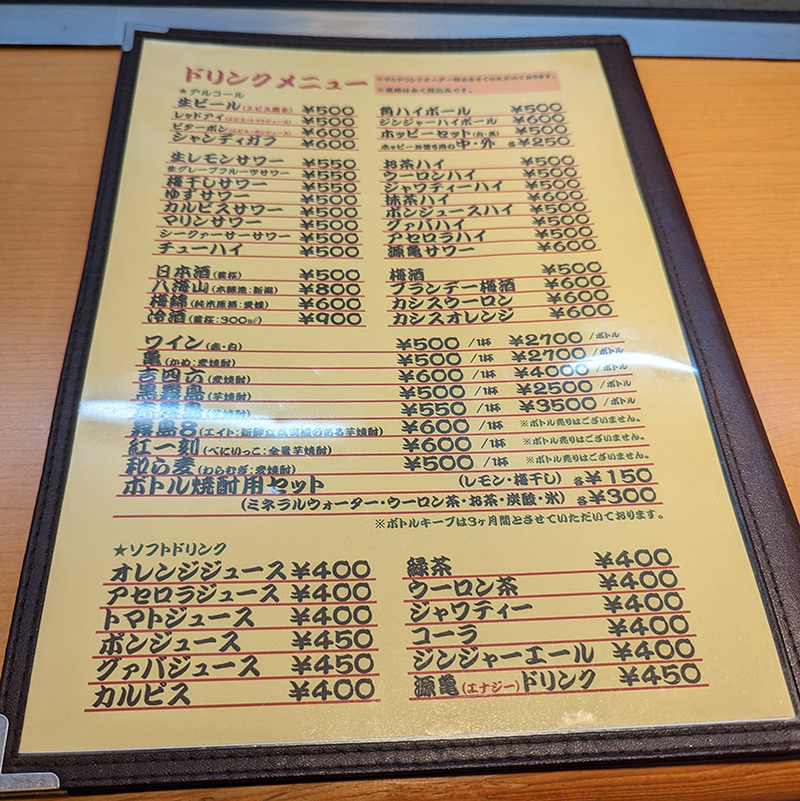 ドリンクメニュー
※ワンドリンクオーダー制とさせていただいております。
※価格は全て税込金です。
★アルコール
生ビール(エビス樽生) ¥500
レッドアイ(エビス・トマトジュース) ¥600
ビターポン(エビス・ポンジュース) ¥600
シャンディガフ ¥600
角ハイボール ¥500
ジンジャーハイボール ¥600
ホッピーセット(白・黒) ¥500
ホッピーお替り用の中・外 各¥250
生レモンサワー ¥550
生グレープフルーツサワー ¥550
梅干しサワー ¥550
ゆずサワー ¥500
カルピスサワー ¥500
マリンサワー ¥500
シークァーサーサワー ¥500
チューハイ ¥500
お茶ハイ ¥500
ウーロンハイ ¥500
ジャワティーハイ ¥500
抹茶ハイ ¥600
ポンジュースハイ ¥500
グァバハイ ¥500
アセロラハイ ¥500
源亀サワー ¥600
日本酒(黄桜) ¥500
八海山(本醸造:新潟) ¥800
梅錦(純米原酒:愛媛) ¥600
冷酒(黄桜:300㎖) ¥900
梅酒 ¥500
ブランデー梅酒 ¥600
カシスウーロン ¥600
カシスオレンジ ¥600
ワイン(赤・白) ¥500/1杯 ¥2700/ボトル
亀(かめ:麦焼酎) ¥500/1杯 ¥2700/ボトル
吉四六(麦焼酎) ¥600/1杯 ¥4000/ボトル
黒霧島(芋焼酎) ¥500/1杯 ¥2500/ボトル
(芋焼酎) ¥550/1杯 ¥3500/ボトル
霧島8(エイト:新鮮な芋焼酎) ¥600/1杯 ※ボトル売りはございません。
紅一刻(べにいっこ:全量芋焼酎) ¥600/1杯 ※ボトル売りはございません。
和ら麦(わらむぎ:麦焼酎) ¥500/1杯 ※ボトル売りはございません。
ボトル焼酎用セット (レモン・梅干し) 各¥150
(ミネラルウォーター・ウーロン茶・お茶・炭酸・氷) 各¥300
※ボトルキープは3ヶ月間とさせていただいております。
★ソフトドリンク
オレンジジュース ¥400
アセロラジュース ¥400
トマトジュース ¥400
ポンジュース ¥450
グァバジュース ¥450
カルピス ¥400
緑茶 ¥400
ウーロン茶 ¥400
ジャワティー ¥400
コーラ ¥400
ジンジャーエール ¥400
源亀(エナジー)ドリンク ¥450